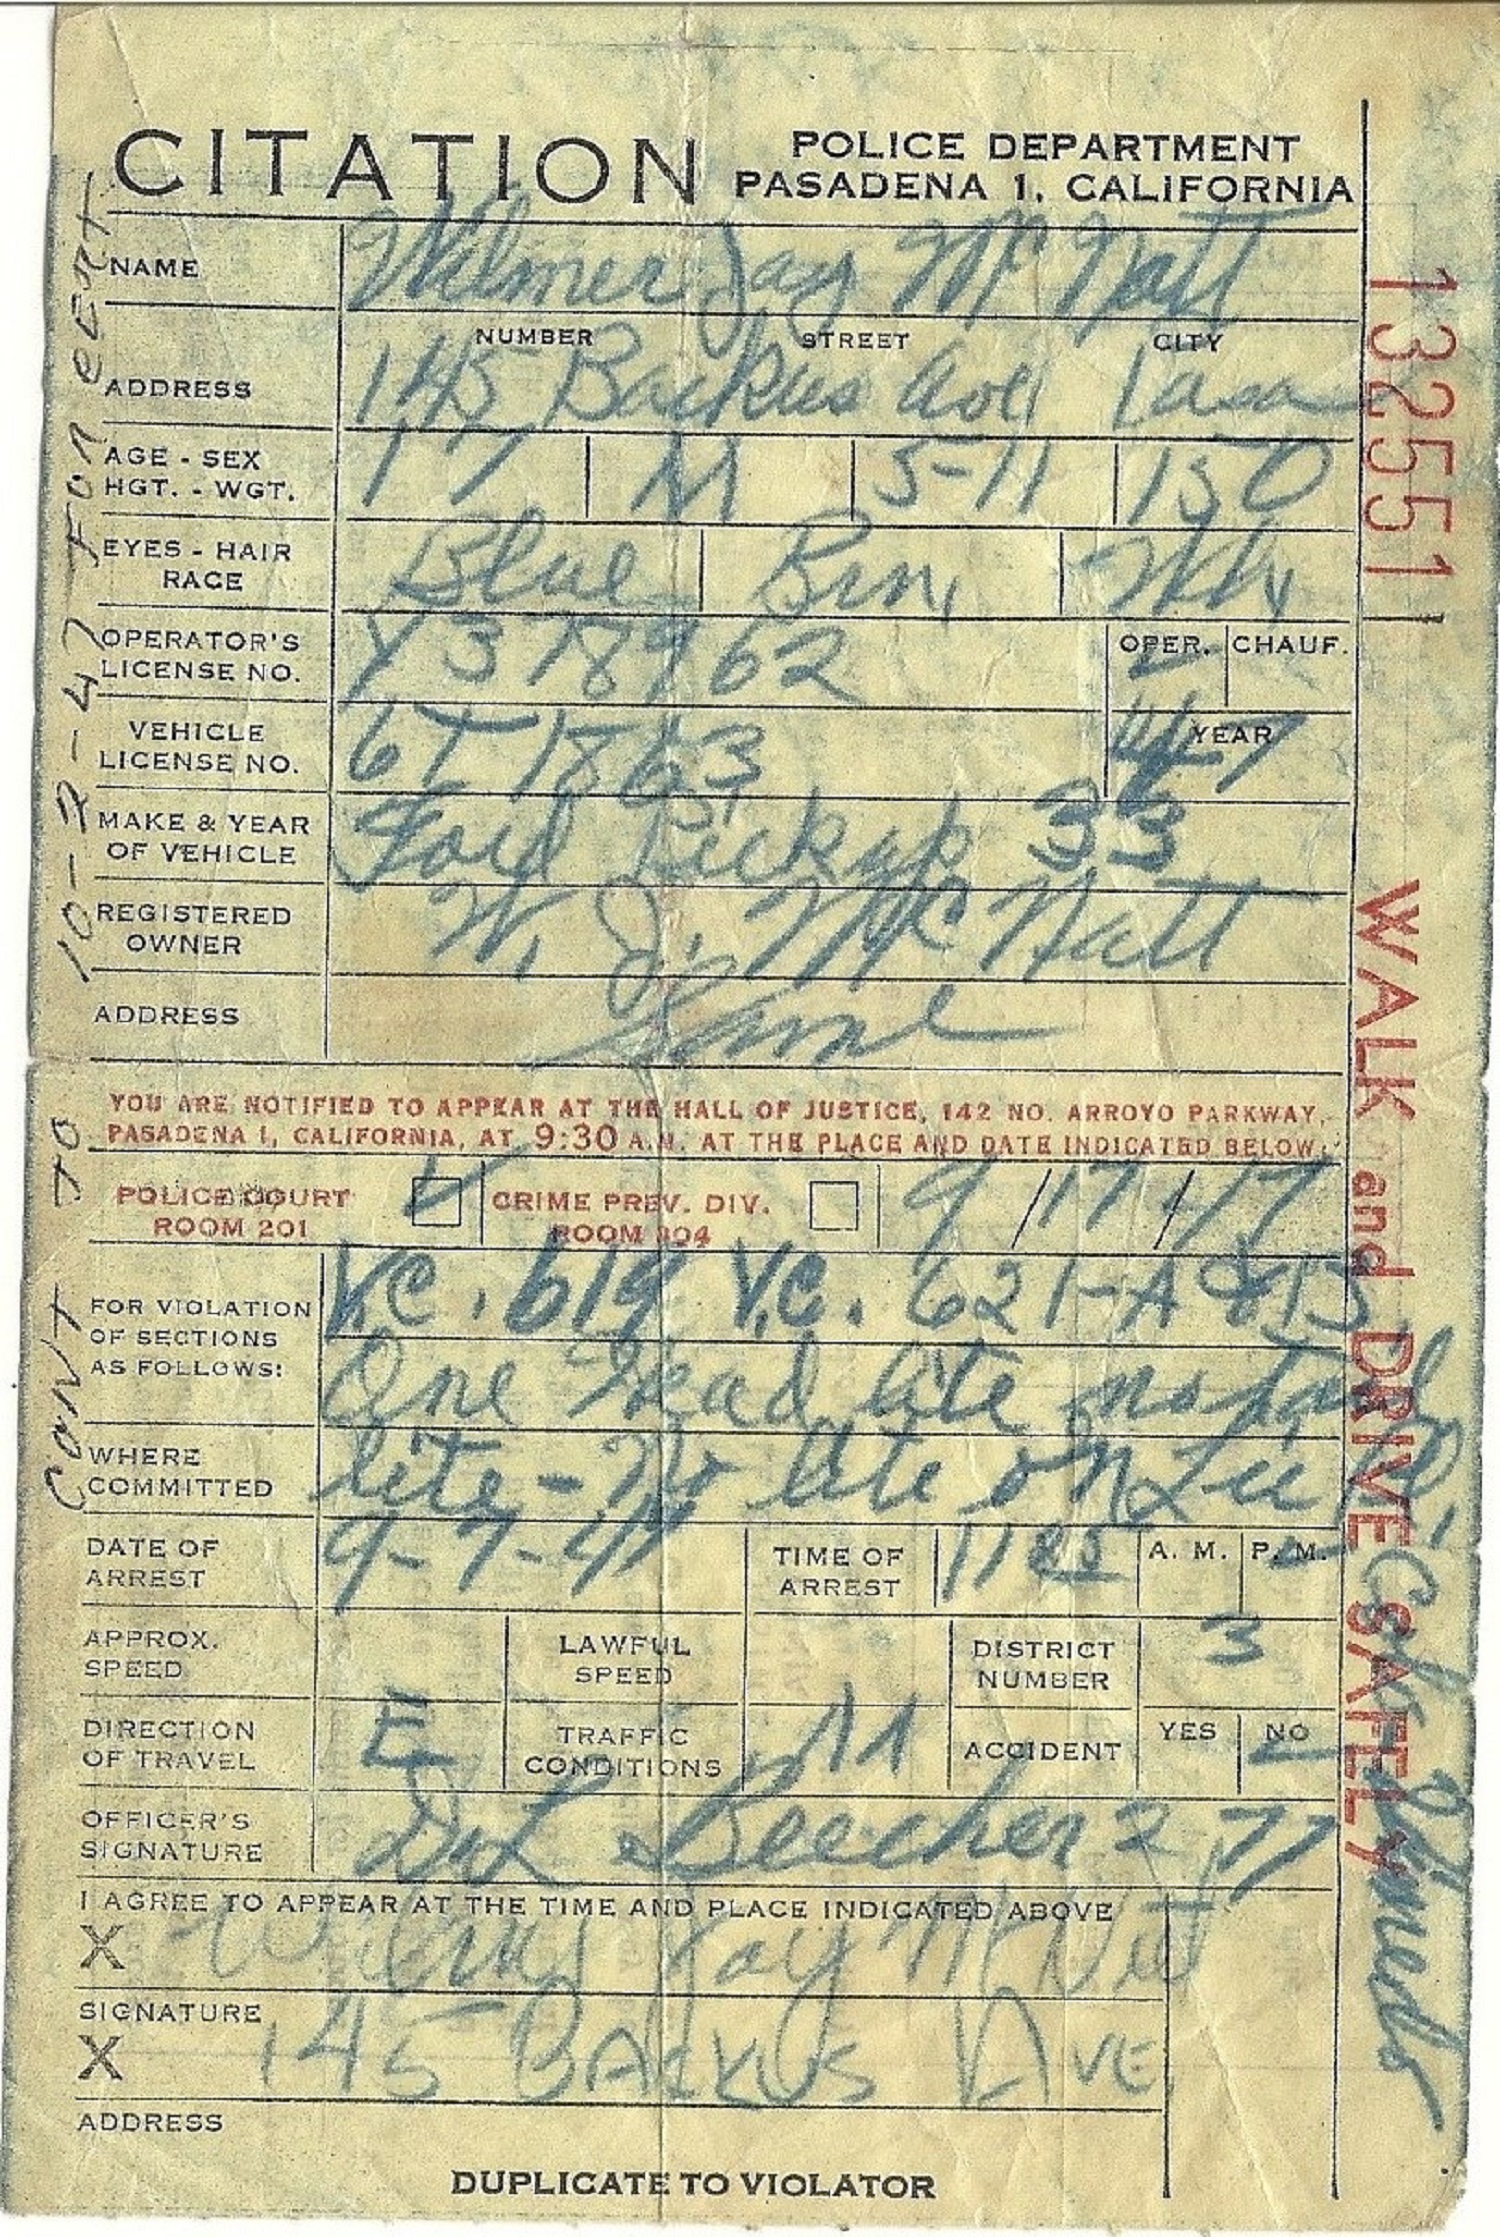 CITATION POLICE DEPARTMENT
PASADENA 1, CALIFORNIA
NAME Wilmer Jay McNatt
NUMBER STREET CITY
ADDRESS 145 Backus Ave Pasa
AGE - SEX
HGT. - WGT. 17 M 5-11 150
EYES - HAIR
RACE Blue Brn, Wh,
OPERATOR'S
LICENSE NO. Y318962 OPER. CHAUF.
VEHICLE
LICENSE NO. 6T1863 YEAR 47
MAKE & YEAR
OF VEHICLE Ford Pickup 33
REGISTERED
OWNER W. J. McNatt
ADDRESS Same
YOU ARE NOTIFIED TO APPEAR AT THE HALL OF JUSTICE, 142 NO. ARROYO PARKWAY,
PASADENA 1, CALIFORNIA, AT 9:30 A.M. AT THE PLACE AND DATE INDICATED BELOW.
POLICE COURT
ROOM 201
CRIME PREV. DIV.
ROOM 304
9/17/47
FOR VIOLATION
OF SECTIONS
AS FOLLOWS:
V.C. 619 V.C. 621-A & B
One Head lite no tail
WHERE
COMMITTED
lite - No lite on Lic Pl.
DATE OF
ARREST 9-7-47
TIME OF
ARREST 11 05 A. M. P. M.
APPROX.
SPEED
LAWFUL
SPEED
DISTRICT
NUMBER 3
DIRECTION
OF TRAVEL E
TRAFFIC
CONDITIONS M
ACCIDENT YES NO
OFFICER'S
SIGNATURE D.L. Beecher 277
I AGREE TO APPEAR AT THE TIME AND PLACE INDICATED ABOVE
X Wilmer Jay McNatt
SIGNATURE
X 145 BACKUS AVE
ADDRESS
DUPLICATE TO VIOLATOR
132551
WALK and DRIVE SAFELY
CONT TO 10-7-47 FOR CERT